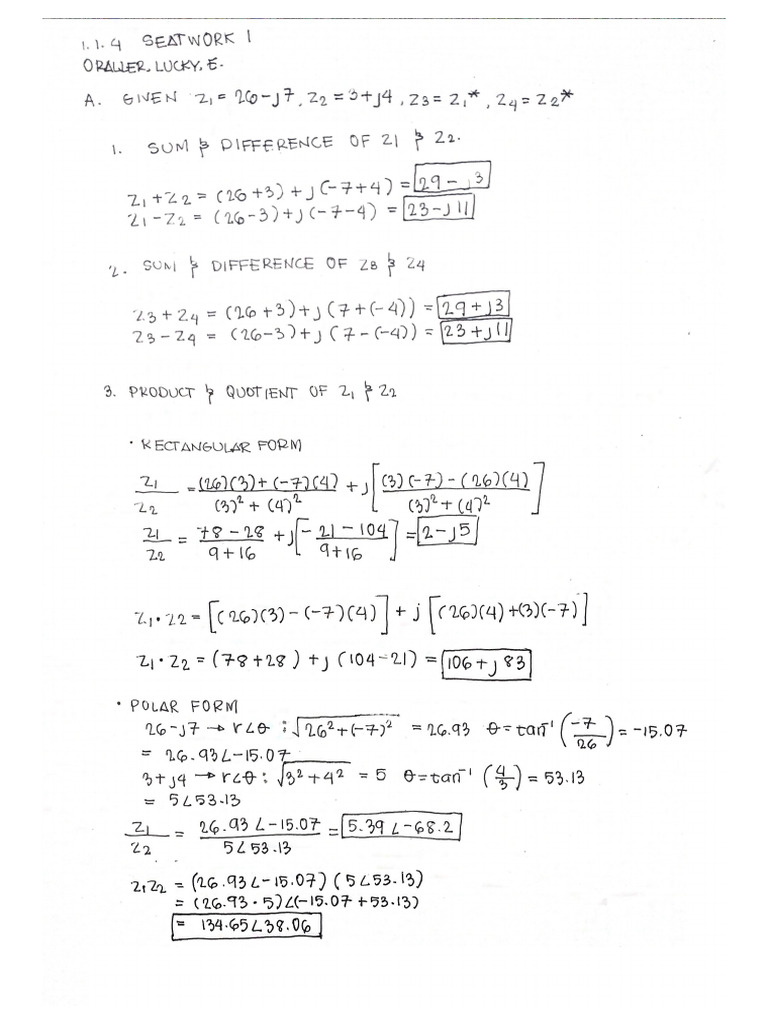 1.1.4 SEATWORK 1
ORALLER, LUCKY, E.
A. GIVEN Z1 = 26-j7, Z2 = 3+j4, Z3 = Z1*, Z4 = Z2*
1. SUM & DIFFERENCE OF Z1 & Z2.
Z1+Z2 = (26+3)+j(-7+4) = 29-j3
Z1-Z2 = (26-3)+j(-7-4) = 23-j11
2. SUM & DIFFERENCE OF Z3 & Z4
Z3+Z4 = (26+3)+j(7+(-4)) = 29+j3
Z3-Z4 = (26-3)+j(7-(-4)) = 23+j11
3. PRODUCT & QUOTIENT OF Z1 & Z2
• RECTANGULAR FORM
Z1/Z2 = (26)(3)+(-7)(4)/(3)²+(4)² + j[(3)(-7)-(26)(4)/(3)²+(4)²]
Z1/Z2 = 78-28/9+16 + j[-21-104/9+16] = 2-j5
Z1•Z2 = [(26)(3)-(-7)(4)] + j[(26)(4)+(3)(-7)]
Z1•Z2 = (78+28)+j(104-21) = 106+j83
• POLAR FORM
26-j7 → r∠θ : √26²+(-7)² = 26.93 θ=tan⁻¹(-7/26) = -15.07
= 26.93∠-15.07
3+j4 → r∠θ : √3²+4² = 5 θ=tan⁻¹(4/3) = 53.13
= 5∠53.13
Z1/Z2 = 26.93∠-15.07/5∠53.13 = 5.39∠-68.2
Z1Z2 = (26.93∠-15.07)(5∠53.13)
= (26.93•5)∠(-15.07+53.13)
= 134.65∠38.06